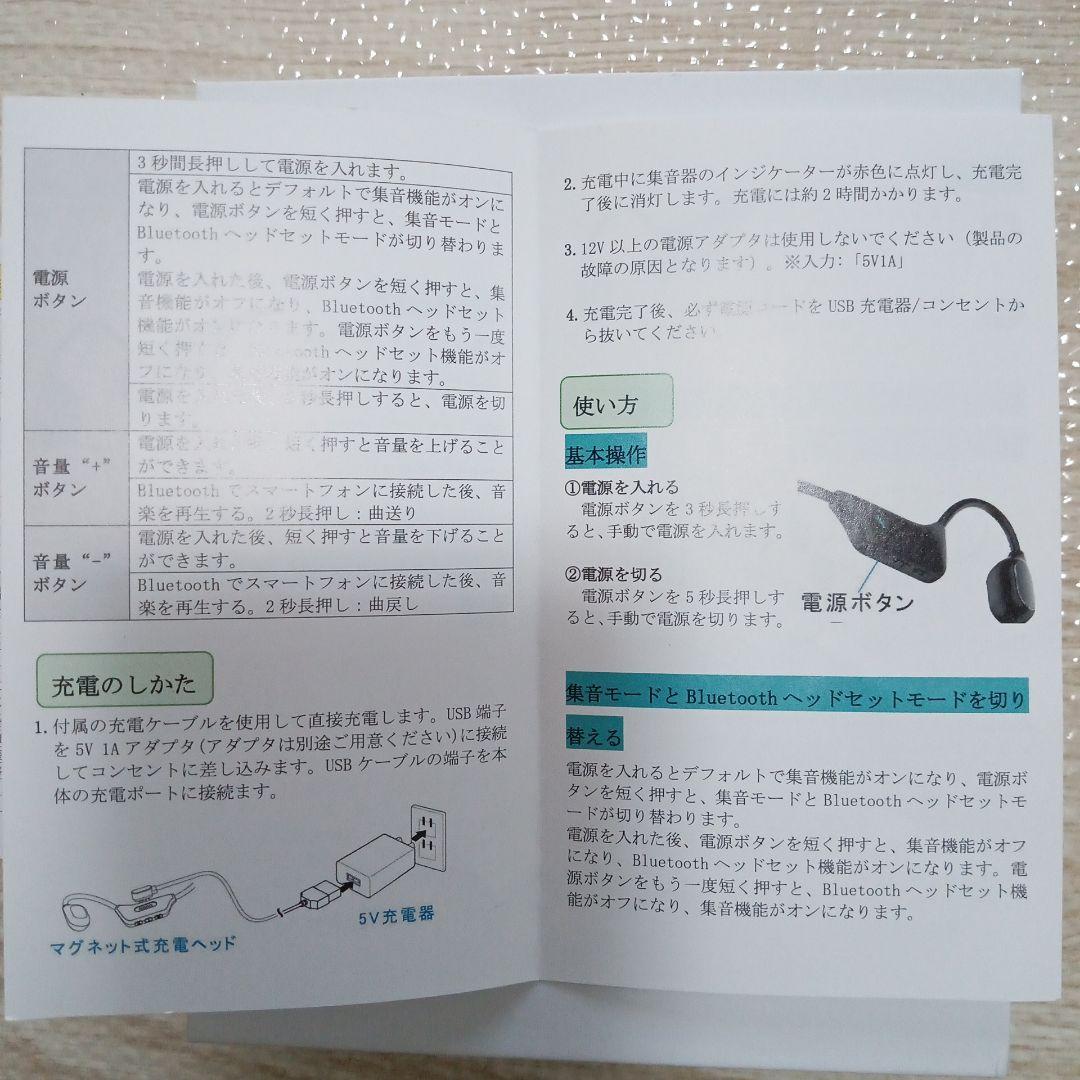 電源
ボタン
3秒間長押しして電源を入れます。
電源を入れるとデフォルトで集音機能がオンに
なり、電源ボタンを短く押すと、集音モードと
Bluetoothヘッドセットモードが切り替わりま
す。
電源を入れた後、電源ボタンを短く押すと、集
音機能がオフになり、Bluetoothヘッドセット
機能がオンになります。電源ボタンをもう一度
短く押すと、Bluetoothヘッドセット機能がオ
フになり、機能がオンになります。
電源を秒長押しすると、電源を切
ります。
音量“+”
ボタン
電源を入れた後、短く押すと音量を上げること
ができます。
Bluetoothでスマートフォンに接続した後、音
楽を再生する。2秒長押し：曲送り
音量“-”
ボタン
電源を入れた後、短く押すと音量を下げること
ができます。
Bluetoothでスマートフォンに接続した後、音
楽を再生する。2秒長押し：曲戻し
充電のしかた
1. 付属の充電ケーブルを使用して直接充電します。USB端子
を5V 1Aアダプタ(アダプタは別途ご用意ください)に接続
してコンセントに差し込みます。USBケーブルの端子を本
体の充電ポートに接続ます。
5V充電器
マグネット式充電ヘッド
2. 充電中に集音器のインジケーターが赤色に点灯し、充電完
了後に消灯します。充電には約2時間かかります。
3. 12V以上の電源アダプタは使用しないでください（製品の
故障の原因となります）。※入力:「5V1A」
4. 充電完了後、必ず電源コードをUSB充電器/コンセントか
ら抜いてください。
使い方
基本操作
①電源を入れる
電源ボタンを3秒長押しす
ると、手動で電源を入れます。
②電源を切る
電源ボタンを5秒長押しす
ると、手動で電源を切ります。
電源ボタン
集音モードとBluetoothヘッドセットモードを切り
替える
電源を入れるとデフォルトで集音機能がオンになり、電源ボ
タンを短く押すと、集音モードとBluetoothヘッドセットモ
ードが切り替わります。
電源を入れた後、電源ボタンを短く押すと、集音機能がオフ
になり、Bluetoothヘッドセット機能がオンになります。電
源ボタンをもう一度短く押すと、Bluetoothヘッドセット機
能がオフになり、集音機能がオンになります。